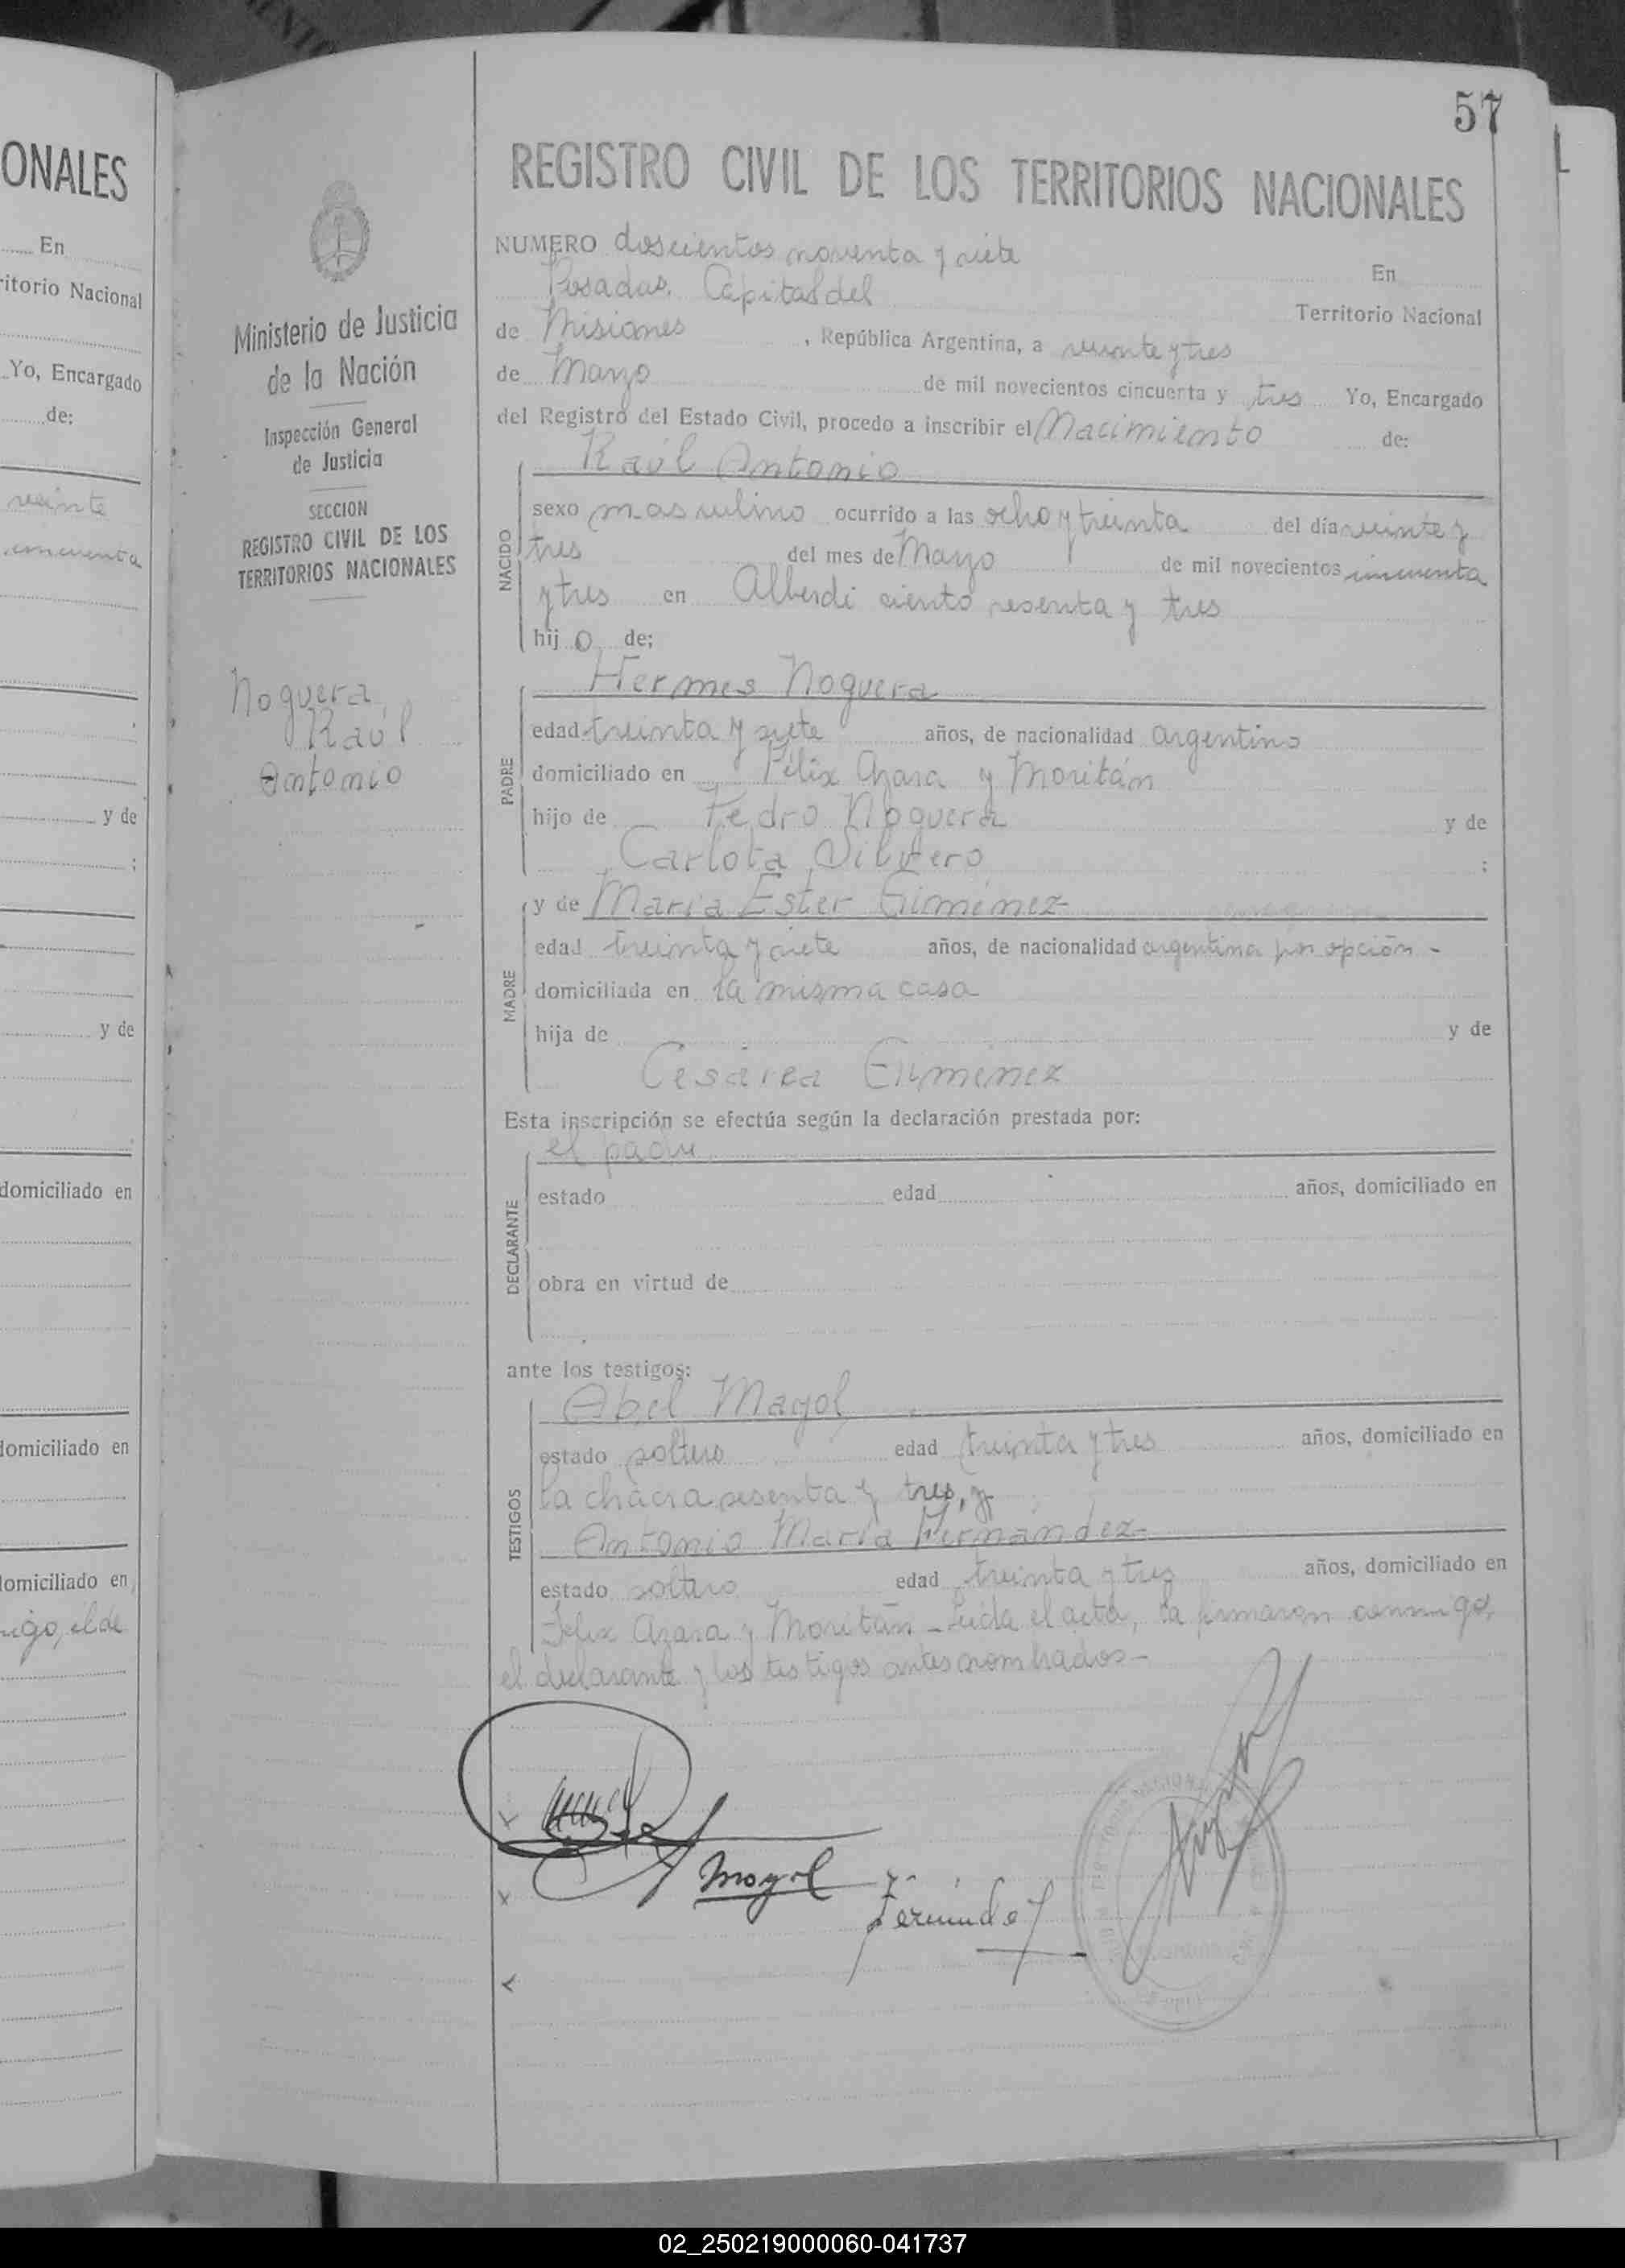 57
ONALES
En
ritorio Nacional
Yo, Encargado
de:
veinte
cincuenta
y de
;
y de
domiciliado en
domiciliado en
domiciliado en
Ministerio de Justicia
de la Nación
Inspección General
de Justicia
SECCION
REGISTRO CIVIL DE LOS
TERRITORIOS NACIONALES
Noguera
Raúl
Antonio
REGISTRO CIVIL DE LOS TERRITORIOS NACIONALES
NUMERO doscientos noventa y siete En
Posadas, Capital del Territorio Nacional
de Misiones, República Argentina, a veinte y tres
de Marzo de mil novecientos cincuenta y tres Yo, Encargado
del Registro del Estado Civil, procedo a inscribir el Nacimiento de:
Raúl Antonio
NACIDO
sexo masculino ocurrido a las ocho y treinta del día veinte y
tres del mes de Marzo de mil novecientos cincuenta
y tres en Alberdi ciento sesenta y tres
hijo de;
Hermes Noguera
PADRE
edad treinta y siete años, de nacionalidad argentino
domiciliado en Félix Azara y Moritán
hijo de Pedro Noguera y de
Carlota ;
y de María Ester Giménez
MADRE
edad treinta y siete años, de nacionalidad argentina por opción -
domiciliada en la misma casa
hija de y de
Cesárea Giménez
Esta inscripción se efectúa según la declaración prestada por:
el padre
DECLARANTE
estado edad años, domiciliado en
obra en virtud de
ante los testigos:
Abel Mayol
TESTIGOS
estado soltero edad treinta y tres años, domiciliado en
la chacra sesenta y tres, y
Antonio María Fernández
estado soltero edad treinta y tres años, domiciliado en
Felix Azara y Moritán - Leída el acta, la firmaron conmigo,
el declarante y los testigos antes nombrados -
Mayol
02_250219000060-041737